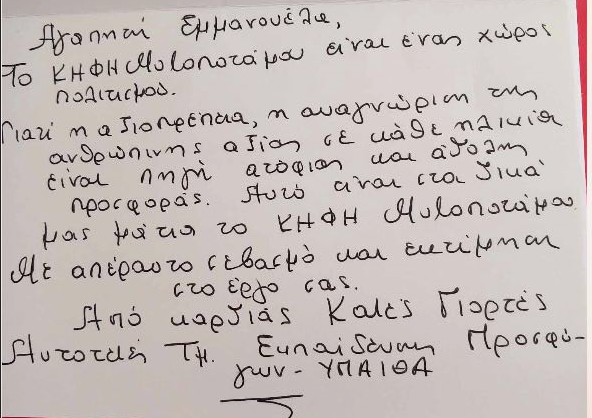 Αγαπητή Εμμανουέλα,
Το ΚΗΦΗ Μυλοποτάμου είναι ένας χώρος
πολιτισμού.
Γιατί η αξιοπρέπεια, η αναγνώριση της
ανθρώπινης αξίας σε κάθε ηλικία
είναι πηγή και άδολη
προσφοράς. Αυτό είναι στα δικά
μας μάτια το ΚΗΦΗ Μυλοποτάμου.
Με απέραντο σεβασμό και εκτίμηση
στο έργο σας.
Από καρδιάς Καλές Γιορτές
Αυτοτελή Τμ. Εκπαίδευσης Προσφύ-
γων - ΥΠΑΙΘΑ